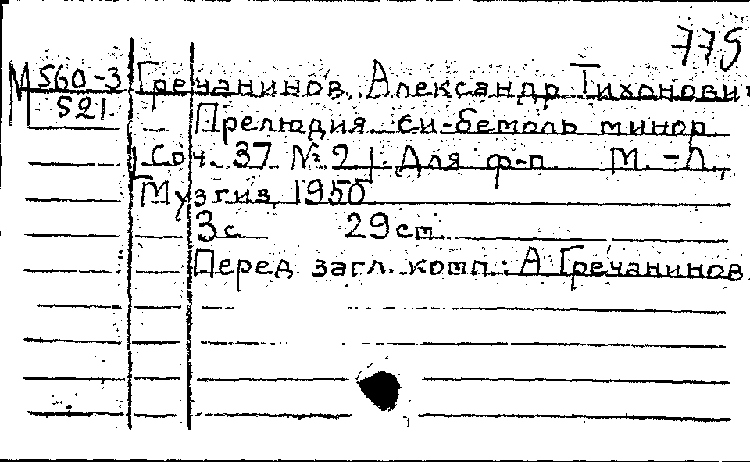 775
М 560-3 Гречанинов, Александр Тихонович
521
Прелюдия си-бемоль минор
[Соч. 37 № 2]. Для ф-п. М.-Л.,
Музгиз, 1950
3 с. 29 см.
Перед загл. комп.: А. Гречанинов